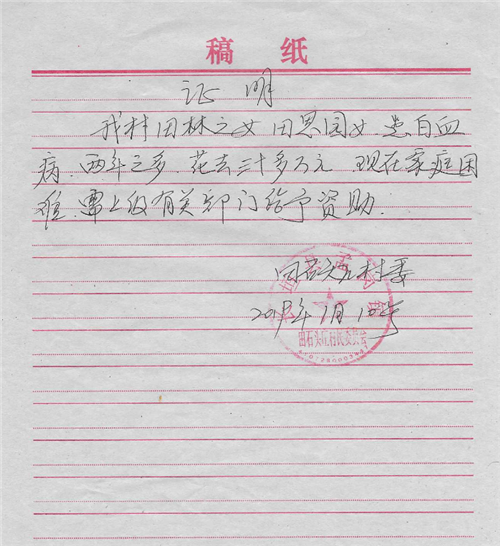 稿 纸
证 明
我村田林之女田恩园女.患白血
病.两年之多.花去三十多万元.现在家庭困
难.需上级有关部门给予资助.
田石头庄村委
2019年1月10号
田石头庄村民委员会